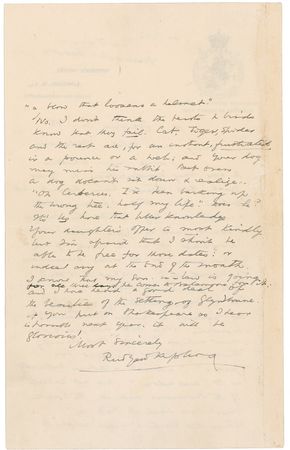 "a blow that loosens a helmet."
No. I don't think the beasts & birds
know that they fail. Cat, Tiger, Spider
and the rest are, for an instant, frustrated
in a pounce or a web; and your dog
may miss his rabbit. But even
a dog doesn't sit down & realize
"Oh Cerberus. I've been barking up
the wrong tree half my life". Does he?
It's we who have that black knowledge
Your daughter's offer is most kindly
but I'm afraid that I shan't be
able to be free for those dates: or
indeed any at the end of the month.
I know that my son-in-law is going
and I have heard a good deal of
the beauties of the setting of Glyndbourne.
If you put on Shakespeare as I hear
is hoped next year, it will be
glorious!
Most Sincerely
Rudyard Kipling